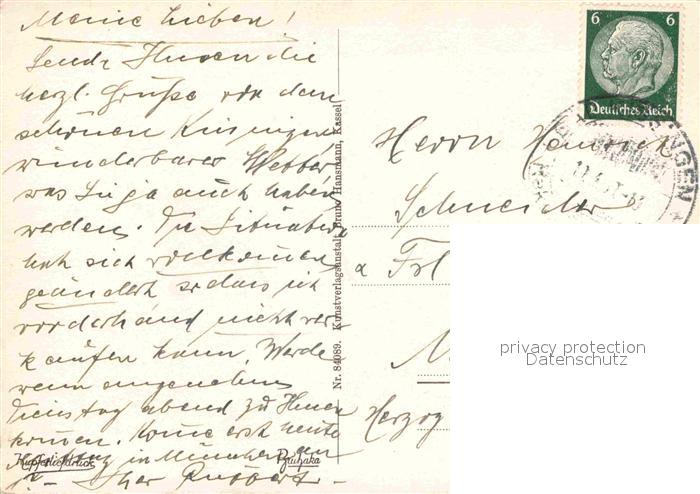 Meine Lieben!
Sende Ihnen die
herzl. Grüße von dem
schönen Kissingen
wunderbares Wetter,
was Sie ja auch haben
werden. Die Situation
hat sich vollkommen
geändert, sodass ich
vorderhand nicht ver-
kaufen kann. Werde
wenn angenehm
Dienstag abend zu Ihnen
kommen. Komme erst heute
in München an
Ihr
Kupfertiefdruck
Bruhaka
Nr. 84089. Kunstverlagsanstalt Bruno Hansmann, Kassel
6 6
Deutsches Reich
INGEN
Herrn Heinrich
Schneider
a Frl
M
Herzog
privacy protection
Datenschutz